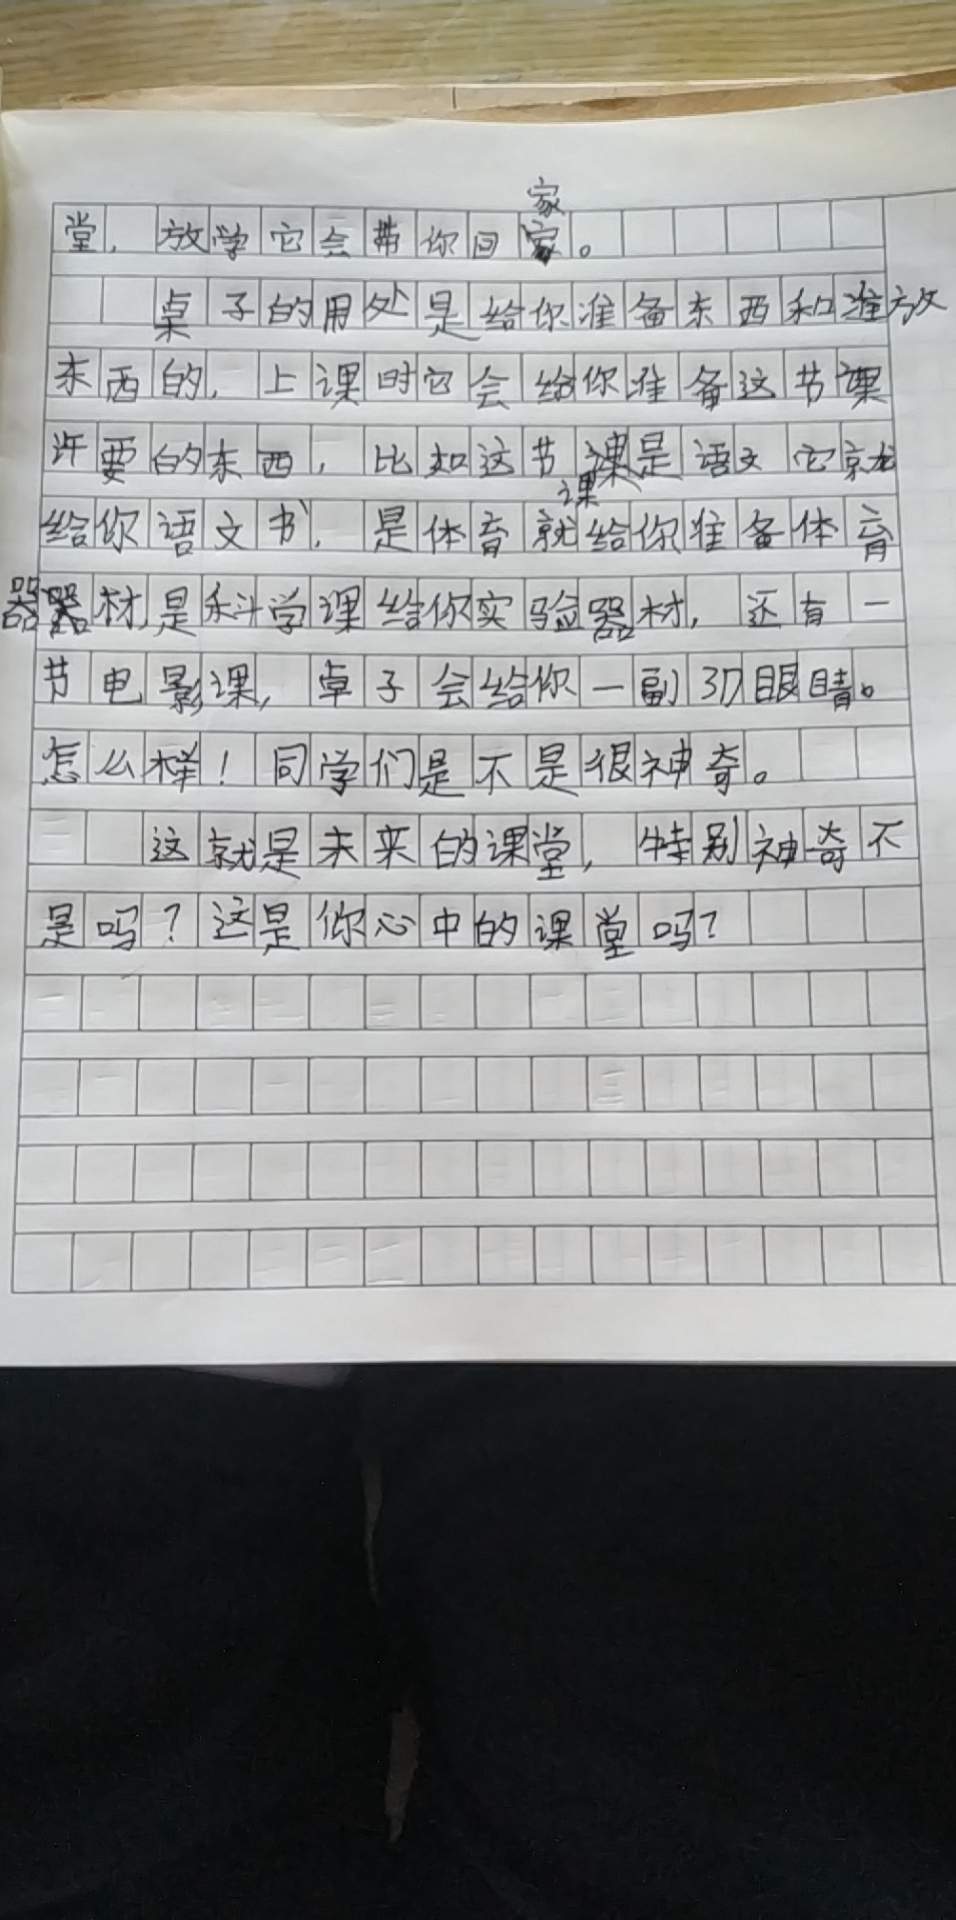 家
堂，放学它会带你回家。
桌子的用处是给你准备东西和准放
东西的，上课时它会给你准备这节课
许要的东西，比如这节课是语文它就
课
给你语文书，是体育就给你准备体育
器器材，是科学课给你实验器材，还有一
节电影课，卓子会给你一副3D眼睛。
怎么样！同学们是不是很神奇。
这就是未来的课堂，特别神奇不
是吗？这是你心中的课堂吗？